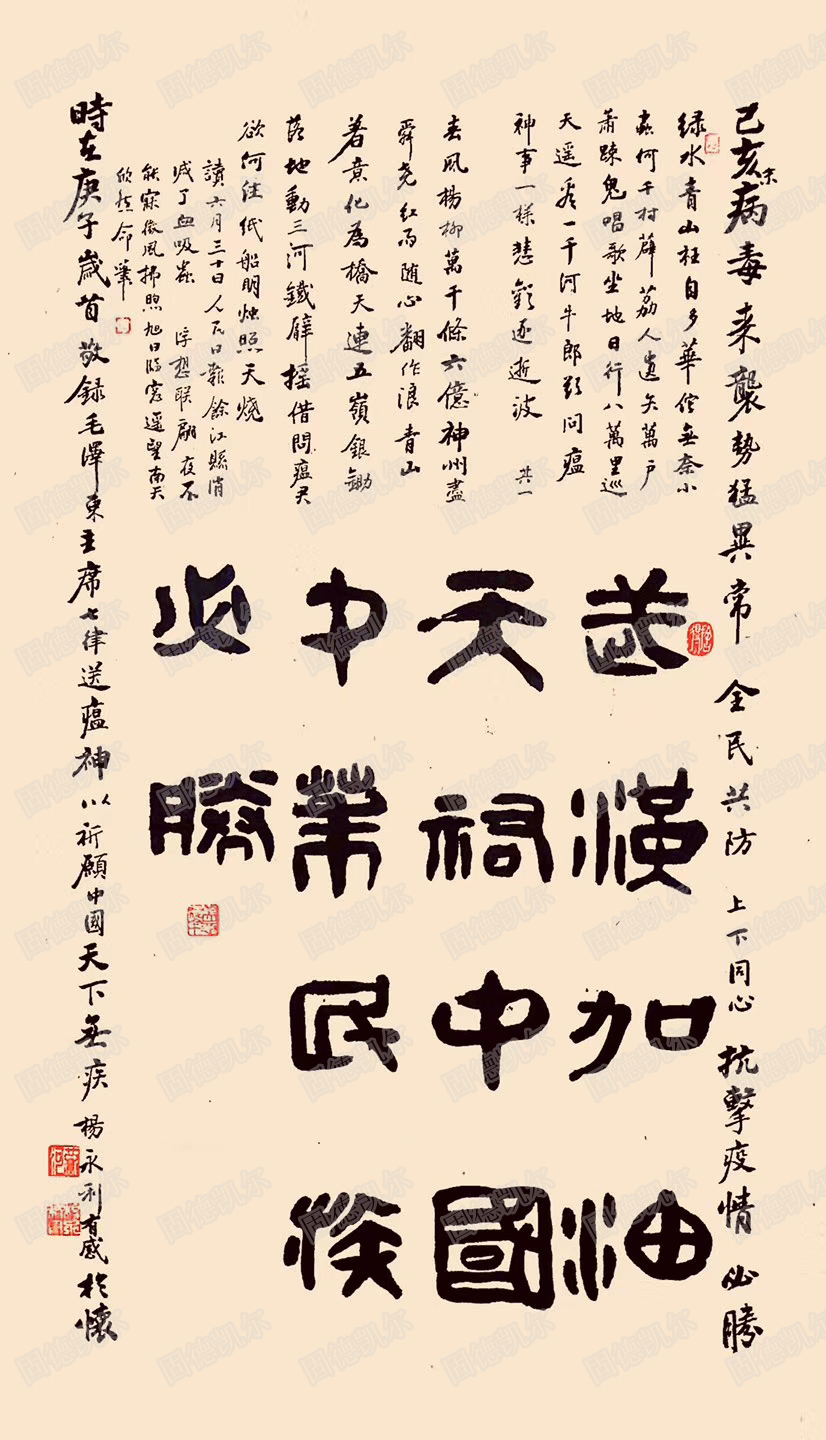 己亥末病毒来襲勢猛異常 全民共防 上下同心 抗擊疫情必勝
绿水青山枉自多華佗無奈小
虫何千村薜荔人遗矢萬户
萧疏鬼唱歌坐地日行八萬里巡
天遥看一千河牛郎欲问瘟
神事一樣悲歡逐逝波 其一
春風楊柳萬千條六億神州盡
舜尧红雨随心翻作浪青山
着意化為橋天連五嶺銀鋤
落地動三河鐵臂摇借問瘟君
欲何往纸船明烛照天烧
讀六月三十日人民日報餘江縣消
滅了血吸蟲 浮想联翩夜不
能寐微風拂煦旭日临窗遥望南天
欣然命筆
武漢加油
天祐中國
中華民族
必勝
時在庚子歲首敬録毛澤東主席七律送瘟神以祈願中國天下無疾楊永利有感於懷
固德凯尔